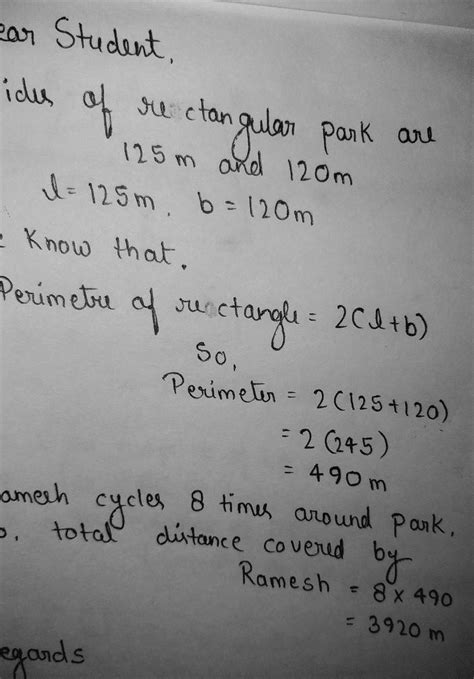 ear Student,
ides of rectangular park are
125m and 120m
l = 125m, b = 120m
e Know that,
Perimetre of rectangle = 2(l+b)
So,
Perimeter = 2(125+120)
= 2(245)
= 490m
amesh cycles 8 times around park,
o, total distance covered by
Ramesh = 8 × 490
= 3920 m
egards